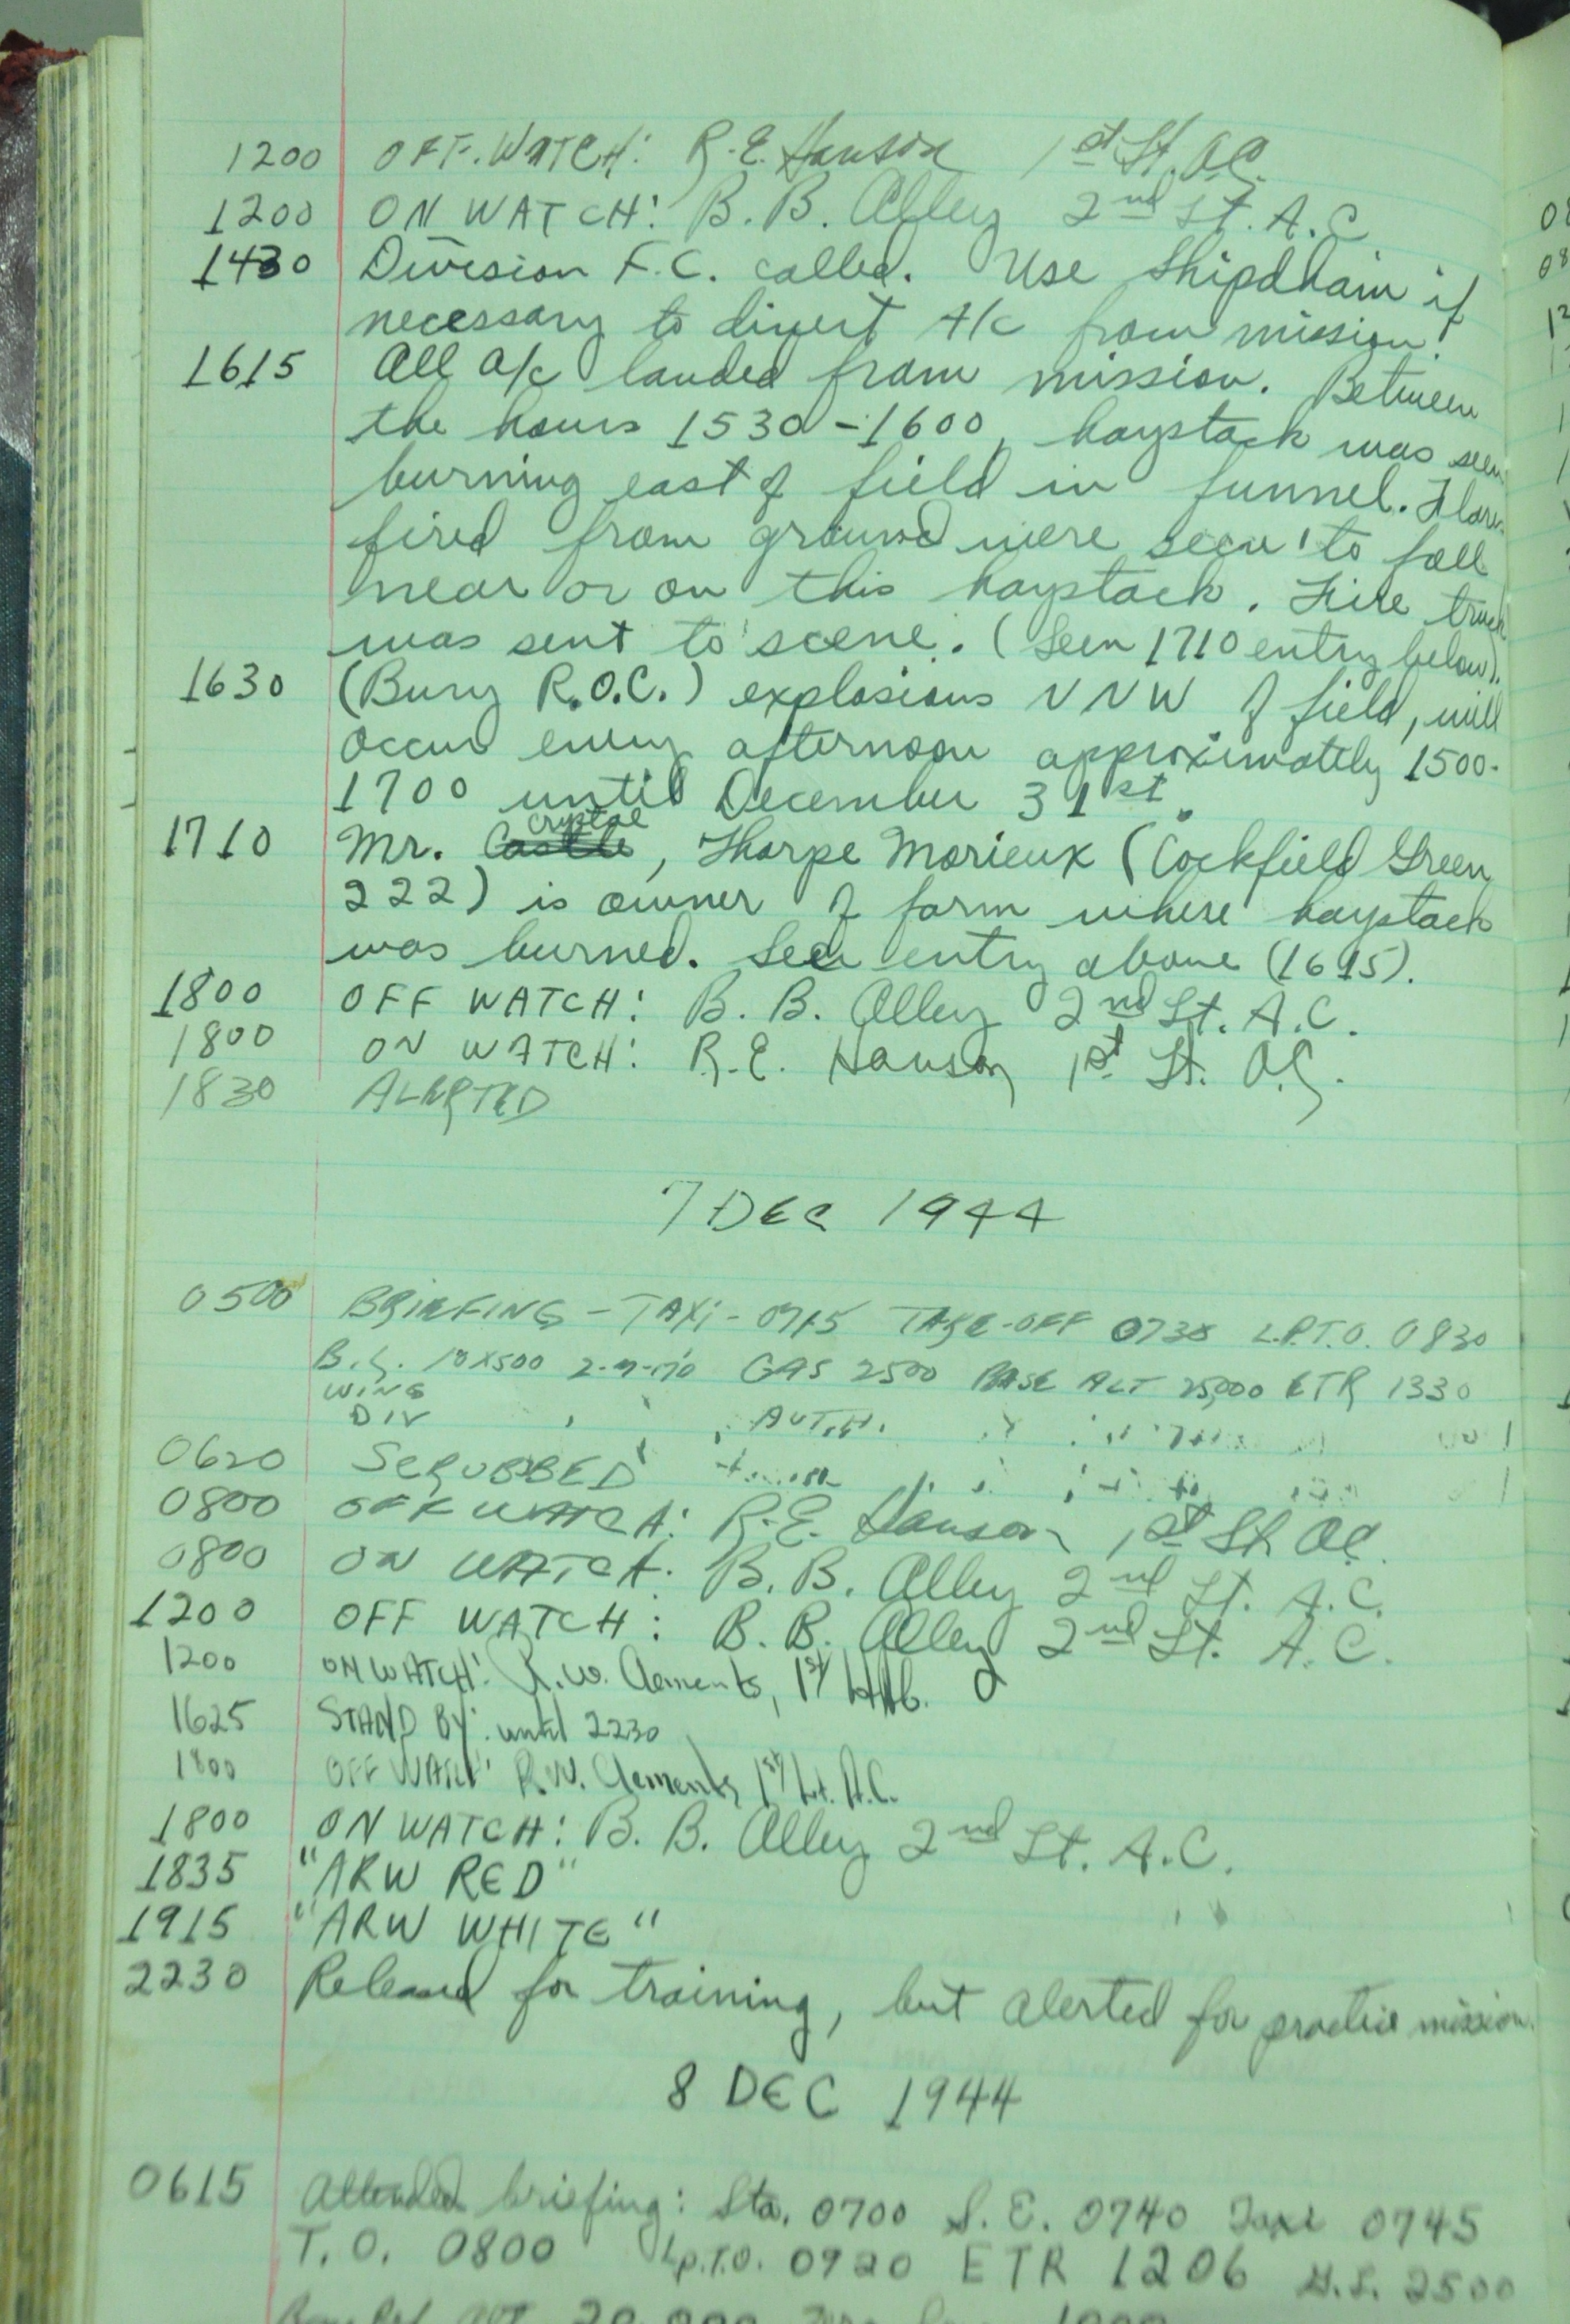 1200 OFF. WATCH: R.E. Hanson 1st Lt. A.C.
1200 ON WATCH: B. B. Alley 2nd Lt. A.C
1430 Division F.C. called. Use Shipdham if
necessary to divert A/c from mission.
1615 All a/c landed from mission. Between
the hours 1530-1600, haystack was seen
burning east of field in funnel. Flares
fired from ground were seen to fall
near or on this haystack. Fire truck
was sent to scene. (Seen 1710 entry below).
1630 (Bury R.O.C.) explosions NNW of field, will
occur every afternoon approximately 1500-
1700 until December 31st.
crystal
1710 Mr. Castle, Thorpe Morieux (Cockfield Green
222) is owner of farm where haystack
was burned. See entry above (1615).
1800 OFF WATCH: B. B. Alley 2nd Lt. A.C.
1800 ON WATCH: R.E. Hanson 1st Lt. A.C.
1830 ALERTED
7 DEC 1944
0500 BRIEFING - TAXI - 0715 TAKE-OFF 0730 L.P.T.O. 0830
B.L. 10X500 GAS 2500 BASE ALT 25,000 ETR 1330
WING
DIV AUTH.
0620 SCRUBBED
0800 OFF WATCH: R.E. Hanson 1st Lt. A.C.
0800 ON WATCH: B. B. Alley 2nd Lt. A.C.
1200 OFF WATCH: B. B. Alley 2nd Lt. A.C.
1200 ON WATCH: R.W. Clements, 1st Lt. A.C.
1625 STAND BY: until 2230
1800 OFF WATCH: R.W. Clements, 1st Lt. A.C.
1800 ON WATCH: B. B. Alley 2nd Lt. A.C.
1835 "ARW RED"
1915 "ARW WHITE"
2230 Released for training, but alerted for practice mission.
8 DEC 1944
0615 Attended briefing: Sta. 0700 S.E. 0740 Taxi 0745
T.O. 0800 L.P.T.O. 0920 ETR 1206 G.S. 2500